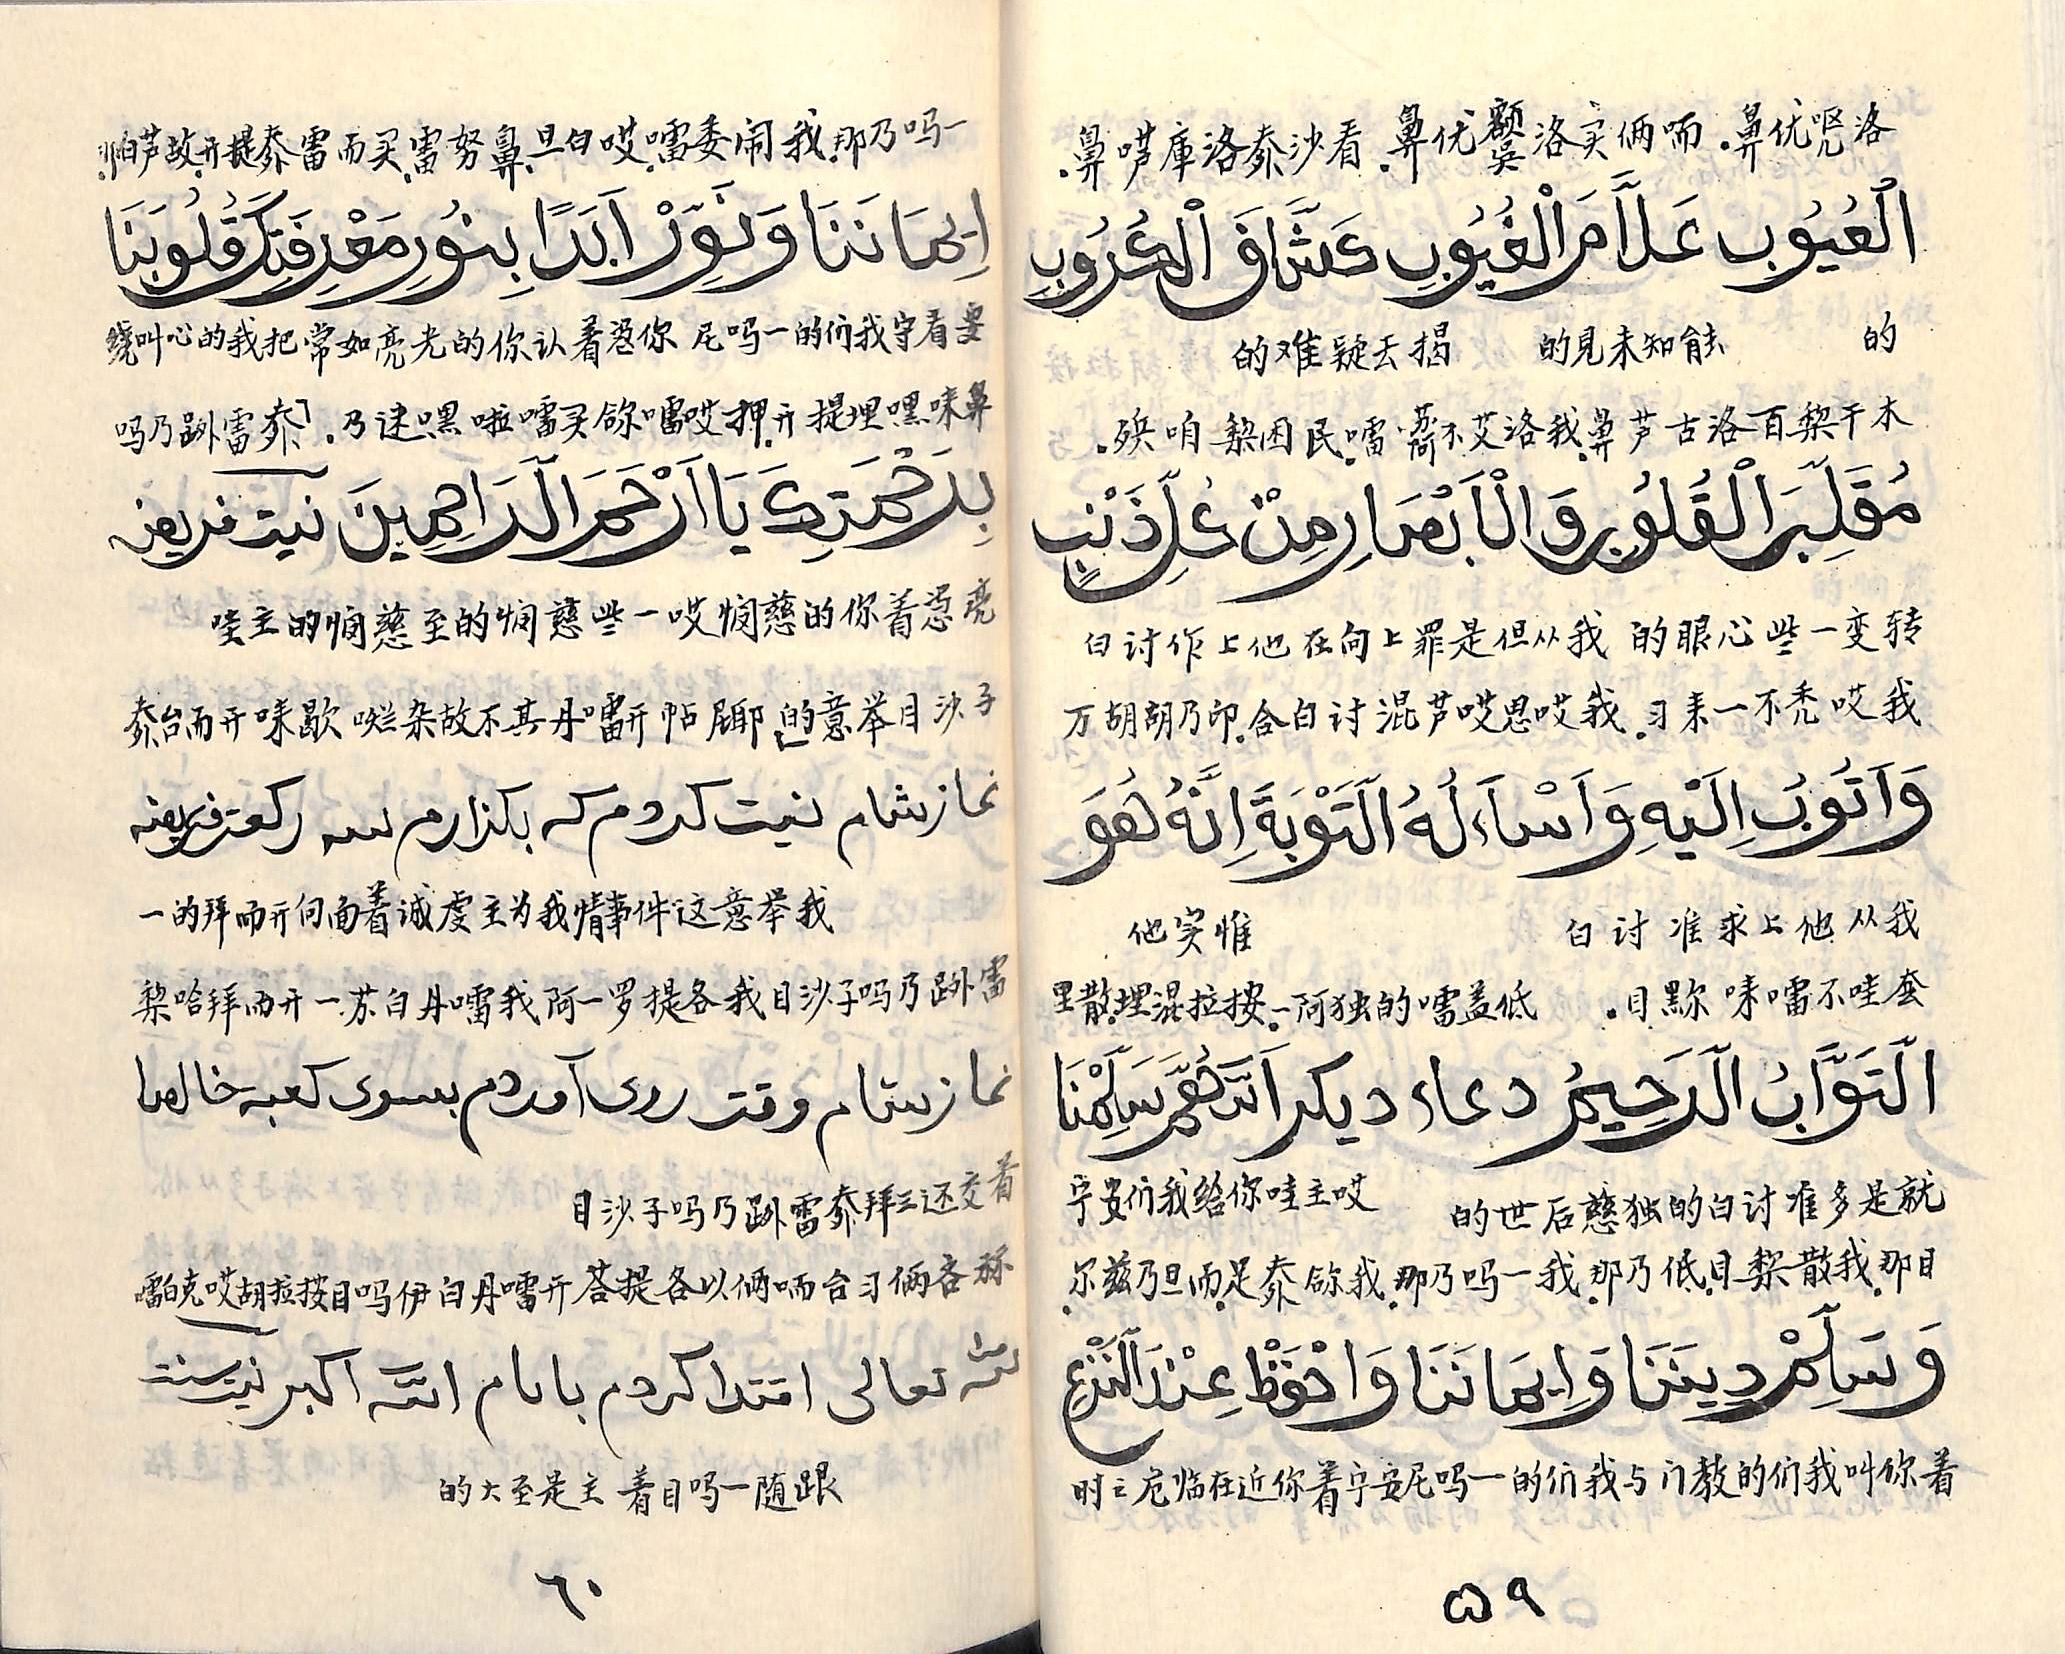 洛 优鼻.唡俩实洛 优鼻.看沙泰洛庫 鼻.
الْعُيُوبِ عَلَّامَ الْغُيُوبِ كَشَّافَ الْكُرُوبِ
的 能知未見的 揭去疑难的
木干梨百洛古芦鼻.我洛艾不 嚅.民困梨咱 .
مُقَلِّبَ الْقُلُوبِ وَالْاَبْصَارِ مِنْ كُلِّ ذَنْبٍ
转变一些心眼的 我从但是罪上向在他上作讨白
我哎秃不一来习.我哎思哎芦混讨白合.印乃胡胡万
وَاَتُوبُ اِلَيْهِ وَاَسْاَءلُهُ الَتَّوْبَةَ اِنَّهُ هُوَ
我从他上求准讨白 惟实他
套哇不雷咪 目. 低盖嚅的独阿一.按拉混埋.散里
الَتَّوَّابُ الَرَّحِيمُ دعاء ديكر اَللّهُمَّ سَلِّمْنَا
就是多准讨白的独慈后世的 哎主哇你给我们安宁
目那.我散梨目.低乃那.我一吗乃那.我 泰足.而旦乃兹尔.
وَسَلِّمْ دِينَنَا وَاِيمَانَنَا وَاحْفَظْ عِنْدَ الَنَّزْعِ
着你叫我们的教门与我们的一吗尼安宁着你近在临危之时
٥٩
一吗乃那.我闹委嚅.哎白旦.鼻努雷.买而雷泰提开.故芦怕
اِيمَانَنَا وَنَوِّرْ اَبَدًا بِنُورِ مَعْرِفَتِكَ قُلُوبَنَا
要看守我们的一吗尼 你 着认你的光亮如常把我的心叫
鼻咪嘿埋提开.押哎嚅 买嚅啦嘿迷乃.泰雷 乃吗
بِرَحْمَتِكَ يَا اَرْحَمَ الَرَّاحِمِينَ نيت فريضه
亮 着你的慈悯哎一些慈悯的至慈悯的主哇
子沙目举意的耶 帖开嚅丹其不故杂 歇咪开而台泰
نماز شام نيت كردم كه بكذارم سه ركعت فريضه
我举意这件事情我为主虔诚着面向开而拜的一
雷 乃吗子沙目我各提罗一阿我嚅丹白苏.一开而拜哈梨
نماز شام وقت روى آوردم بسوى كعبه خالصا
着交还三拜泰雷 乃吗子沙目
各俩习台唡俩以各提答开嚅丹白伊吗目按拉胡哎克白嚅
لله تعالى اقتدا كردم بامام الله اكبر نيت سنت
跟随一吗目着 主是至大的
٦٠